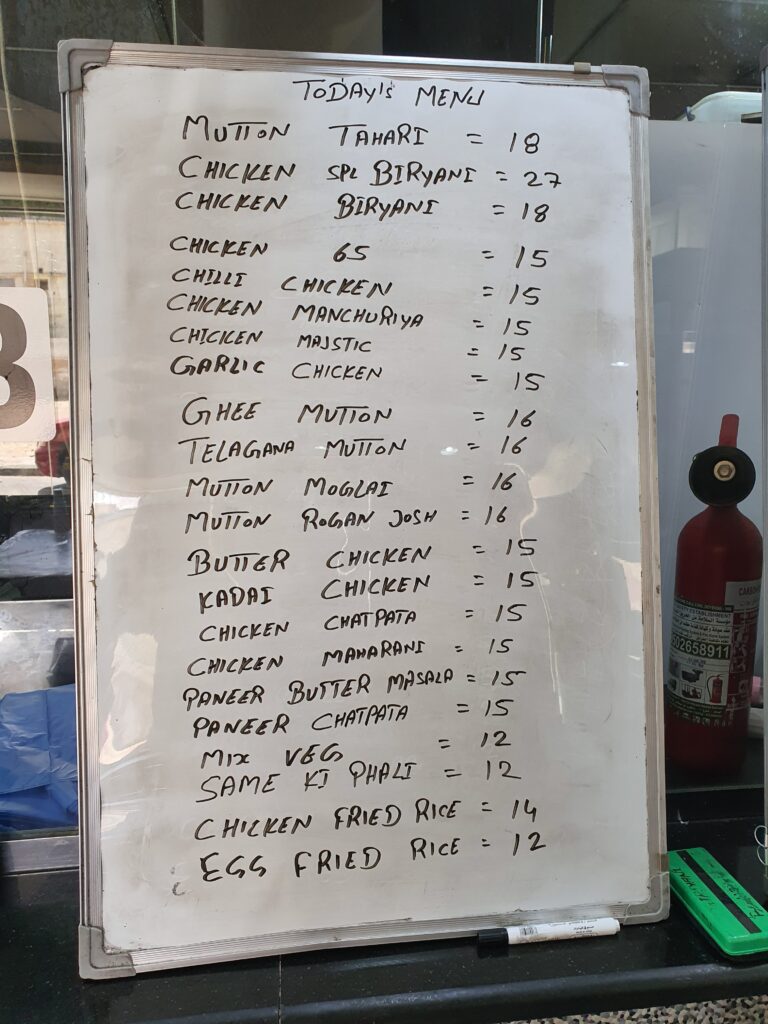 TODAY'S MENU
MUTTON TAHARI = 18
CHICKEN SPL BIRYANI = 27
CHICKEN BIRYANI = 18
CHICKEN 65 = 15
CHILLI CHICKEN = 15
CHICKEN MANCHURIYA = 15
CHICKEN MAJSTIC = 15
GARLIC CHICKEN = 15
GHEE MUTTON = 16
TELAGANA MUTTON = 16
MUTTON MOGLAI = 16
MUTTON ROGAN JOSH = 16
BUTTER CHICKEN = 15
KADAI CHICKEN = 15
CHICKEN CHATPATA = 15
CHICKEN MAHARANI = 15
PANEER BUTTER MASALA = 15
PANEER CHATPATA = 15
MIX VEG = 12
SAME KI PHALI = 12
CHICKEN FRIED RICE = 14
EGG FRIED RICE = 12